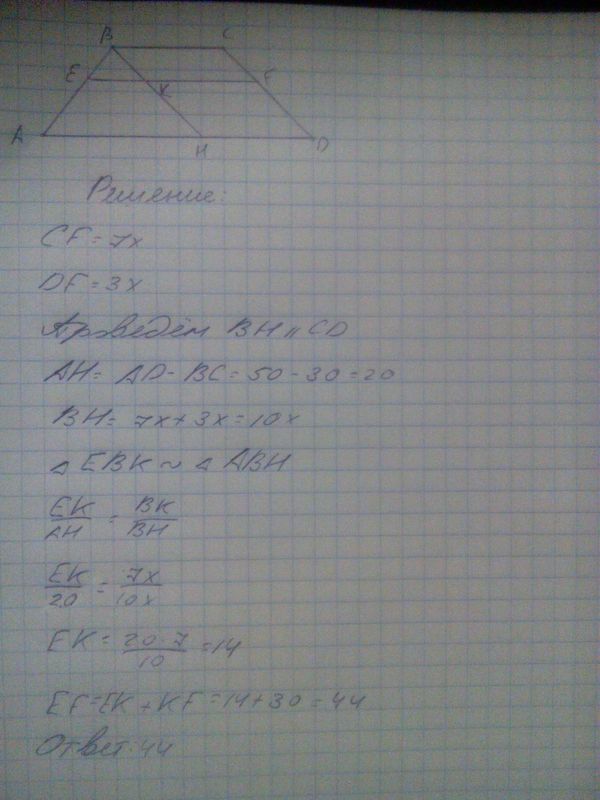 B C
E K F
A H D
Решение:
CF = 7x
DF = 3x
Проведём BH || CD
AH = AD - BC = 50 - 30 = 20
BH = 7x + 3x = 10x
△ EBK ~ △ ABH
EK/AH = BK/BH
EK/20 = 7x/10x
EK = 20·7/10 = 14
EF = EK + KF = 14 + 30 = 44
Ответ: 44